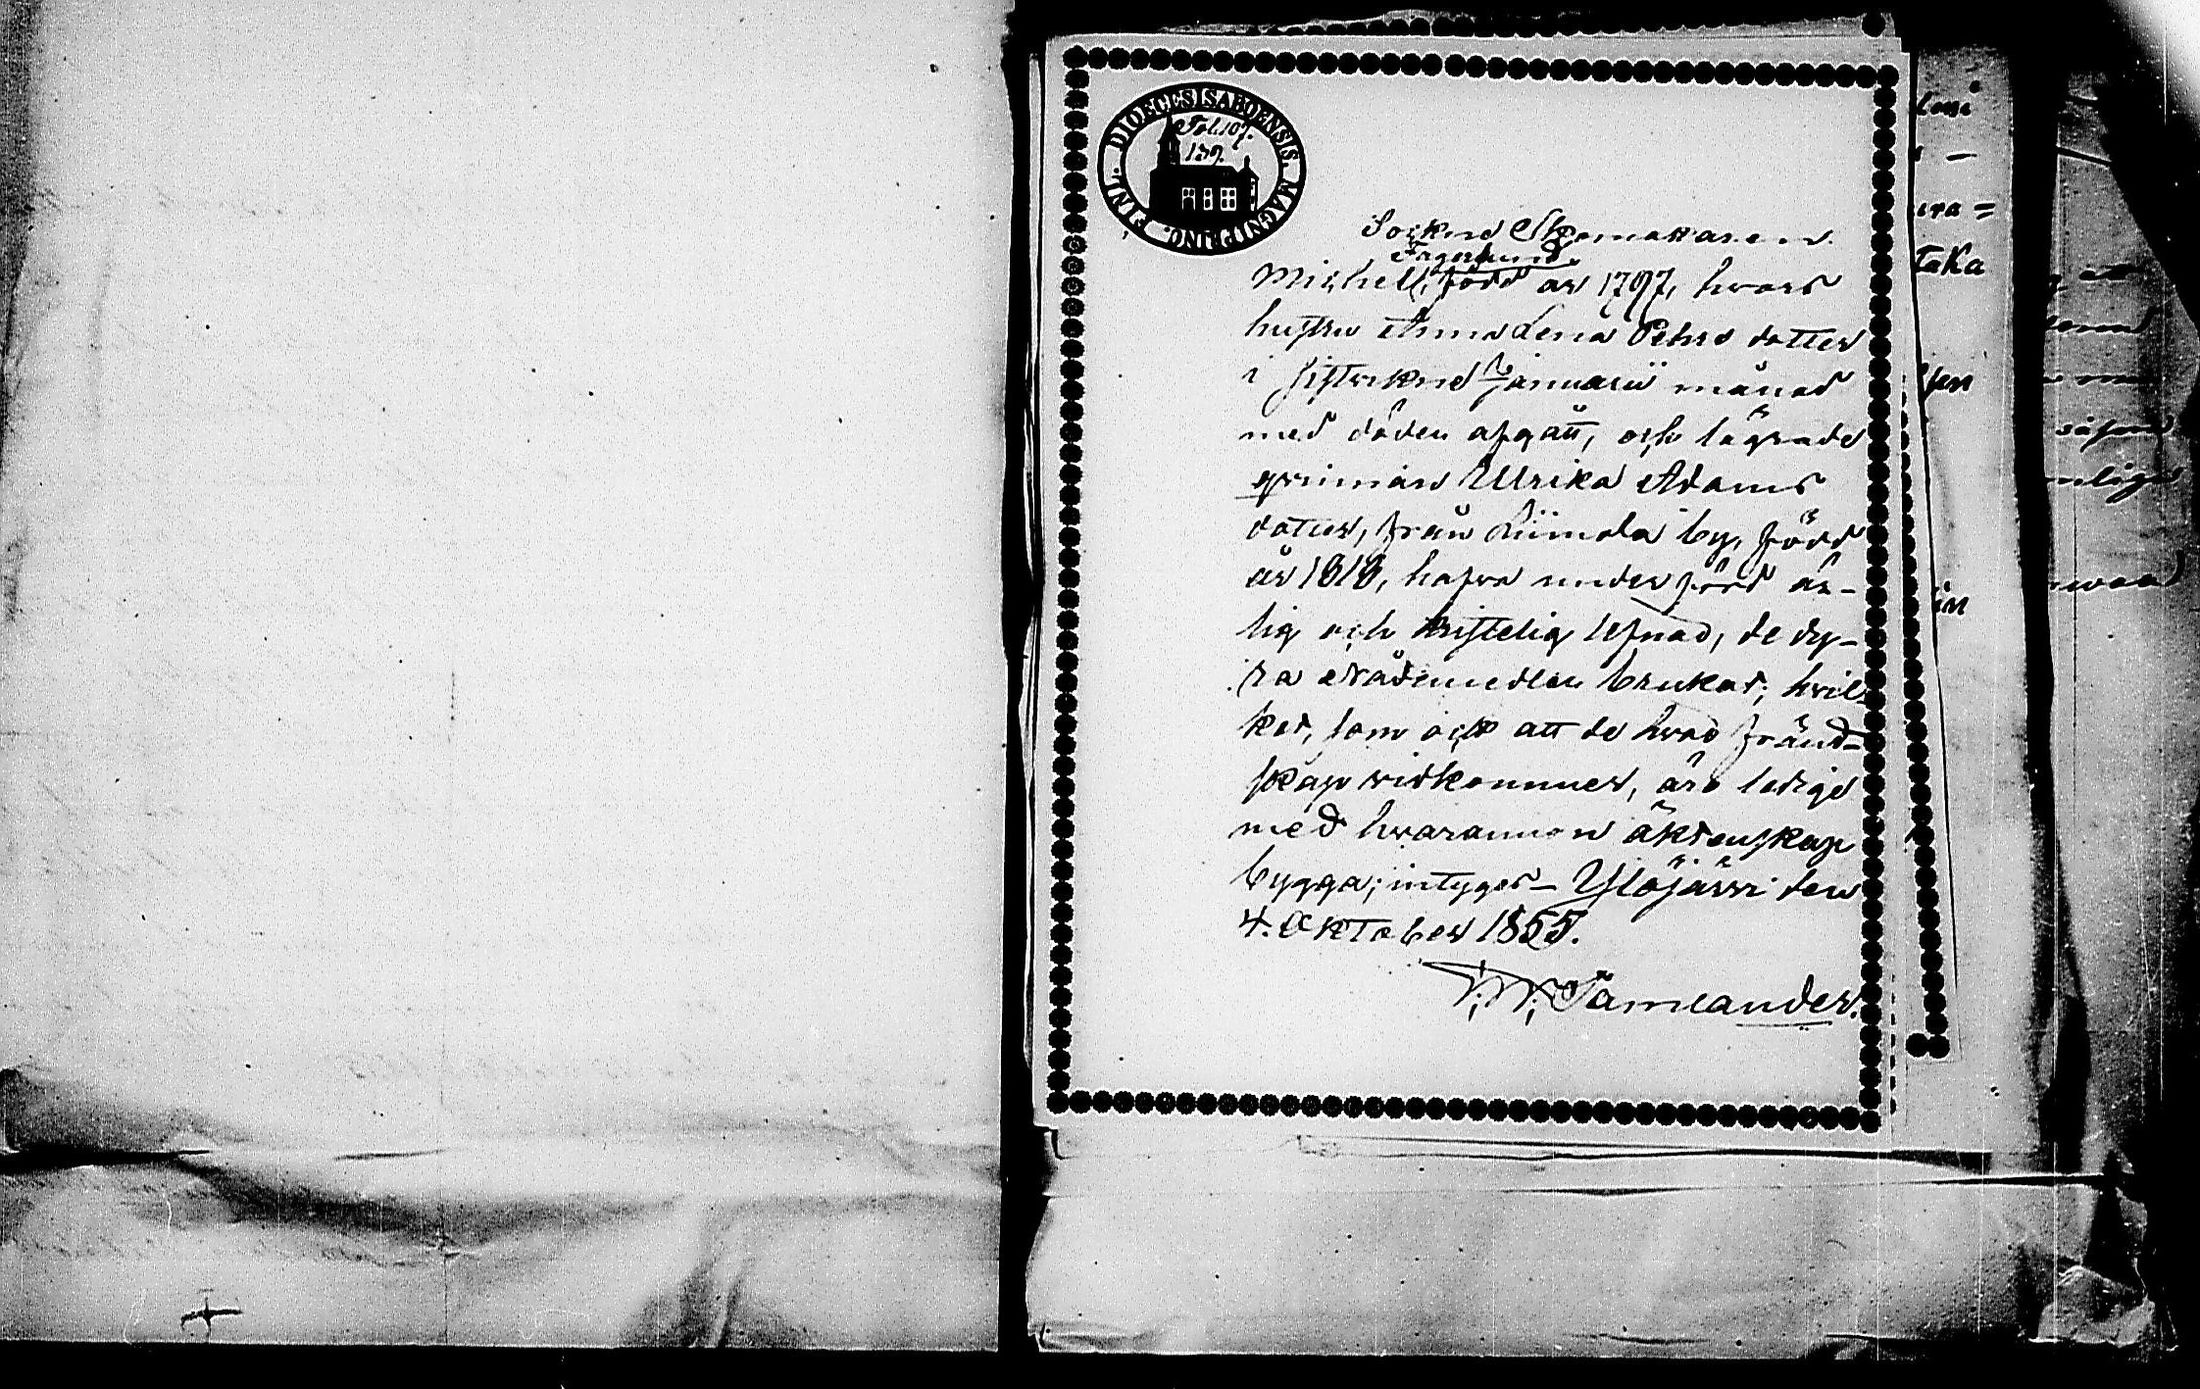 DIOECESIS ABOENSIS. MAGNI PRINC. FINL.
Fol. 107.
139.
Sockne Skomakaren
Fagerlund,
Michell, född år 1797, hvars
hustru Anna Lena Pehrs dotter
i sistvikne Januarii månad
med döden afgått, och lägrade
qvinnan Ulrika Adams
dotter, från Liimola by, född
år 1818, hafva under fört är-
lig och kristelig lefnad, de dy-
ra Nådemedlen brukat; hvil-
ket, som ock att de hvad fränd-
skap vidkommer, äro ledige
med hvarannan äktenskap
bygga; intygar – Ylöjärvi den
4. Oktober 1855.
Tämlander.
taka